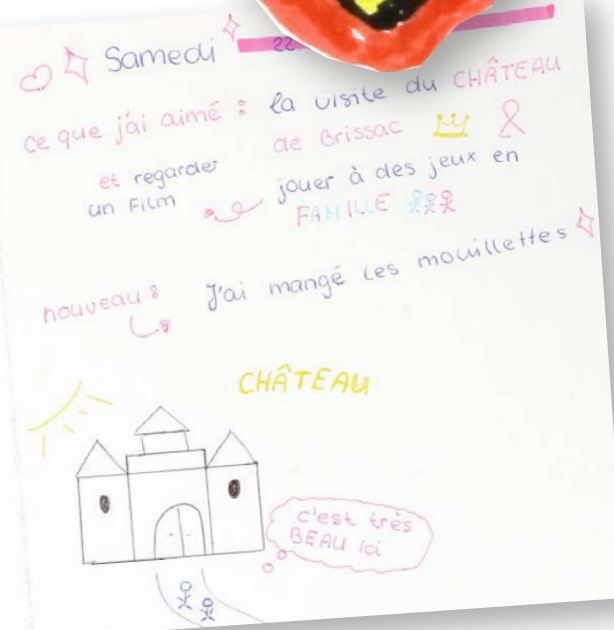 Samedi 22
ce que j'ai aimé : la visite du CHÂTEAU
de Brissac
et regarder
un Film
jouer à des jeux en
FAMILLE
nouveau : J'ai mangé les mouillettes
CHÂTEAU
c'est très
BEAU ici